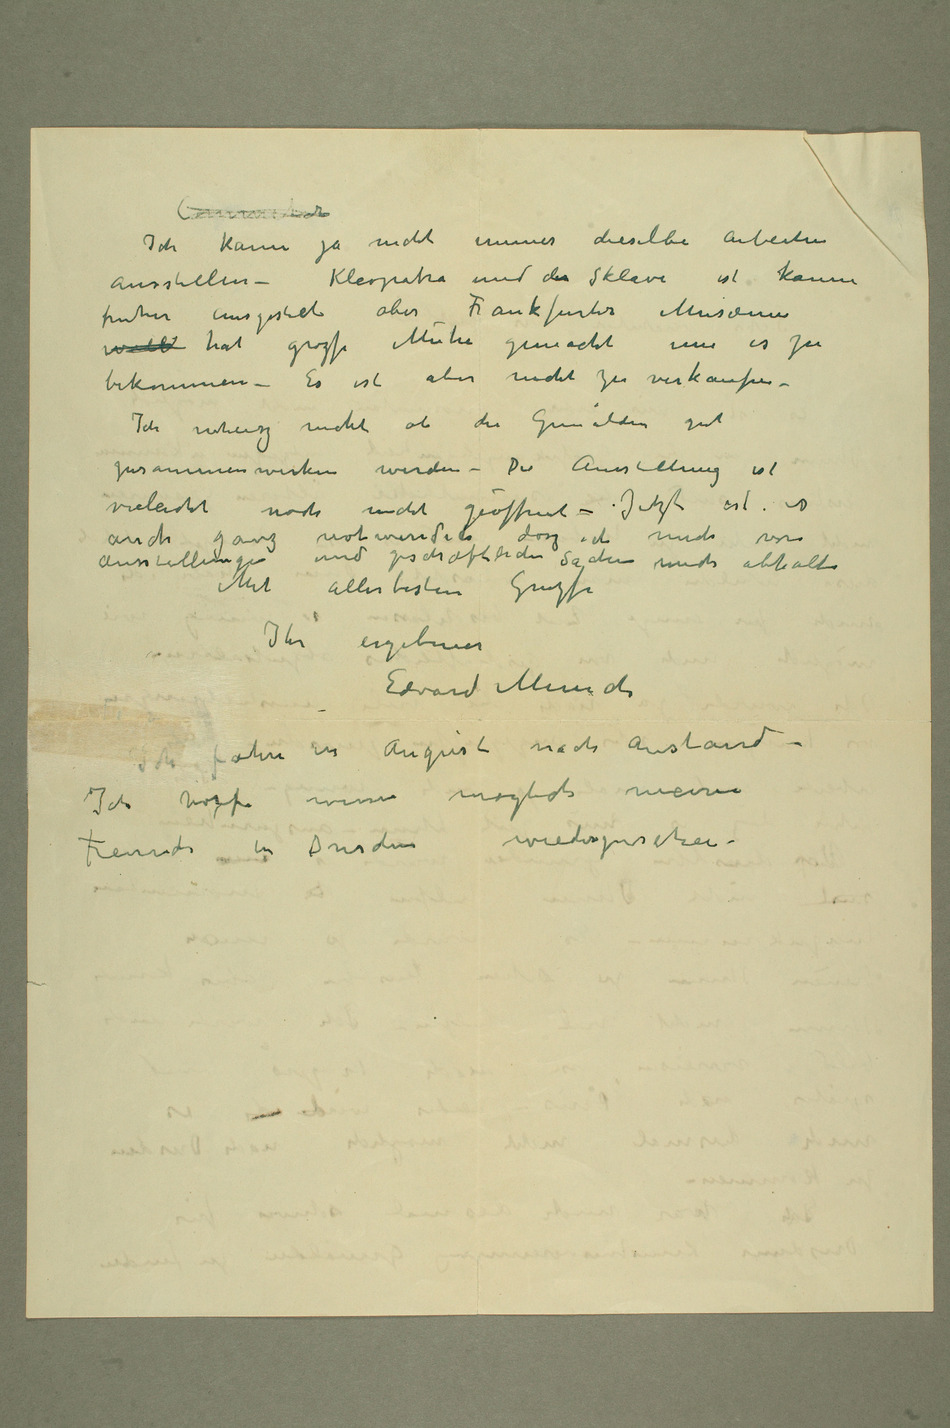 Ich kann ja nicht immer dieselbe Arbeiten
ausstellen – Kleopatra und der Sklave ist kaum
früher ausgestelt aber Frankfurter Museum
hat grozse Mühe gemacht um es zu
bekommen – Es ist aber nicht zu verkaufen –
Ich weisz nicht ob die Gemälden gut
zusammenwirken werden – Die Ausstellung ist
vieleicht noch nicht geöffnet – Jetzt ist es
auch ganz notwendich dasz ich mich von
Ausstellungen und geschäftlichen Sachen mich abhalte
Mit allerbesten Gruzse
Ihr ergebener
Edvard Munch
Ich fahre in August nach Ausland –
Ich hoffe wenn möglich meine
Freunde in Dresden wiederzusehen –